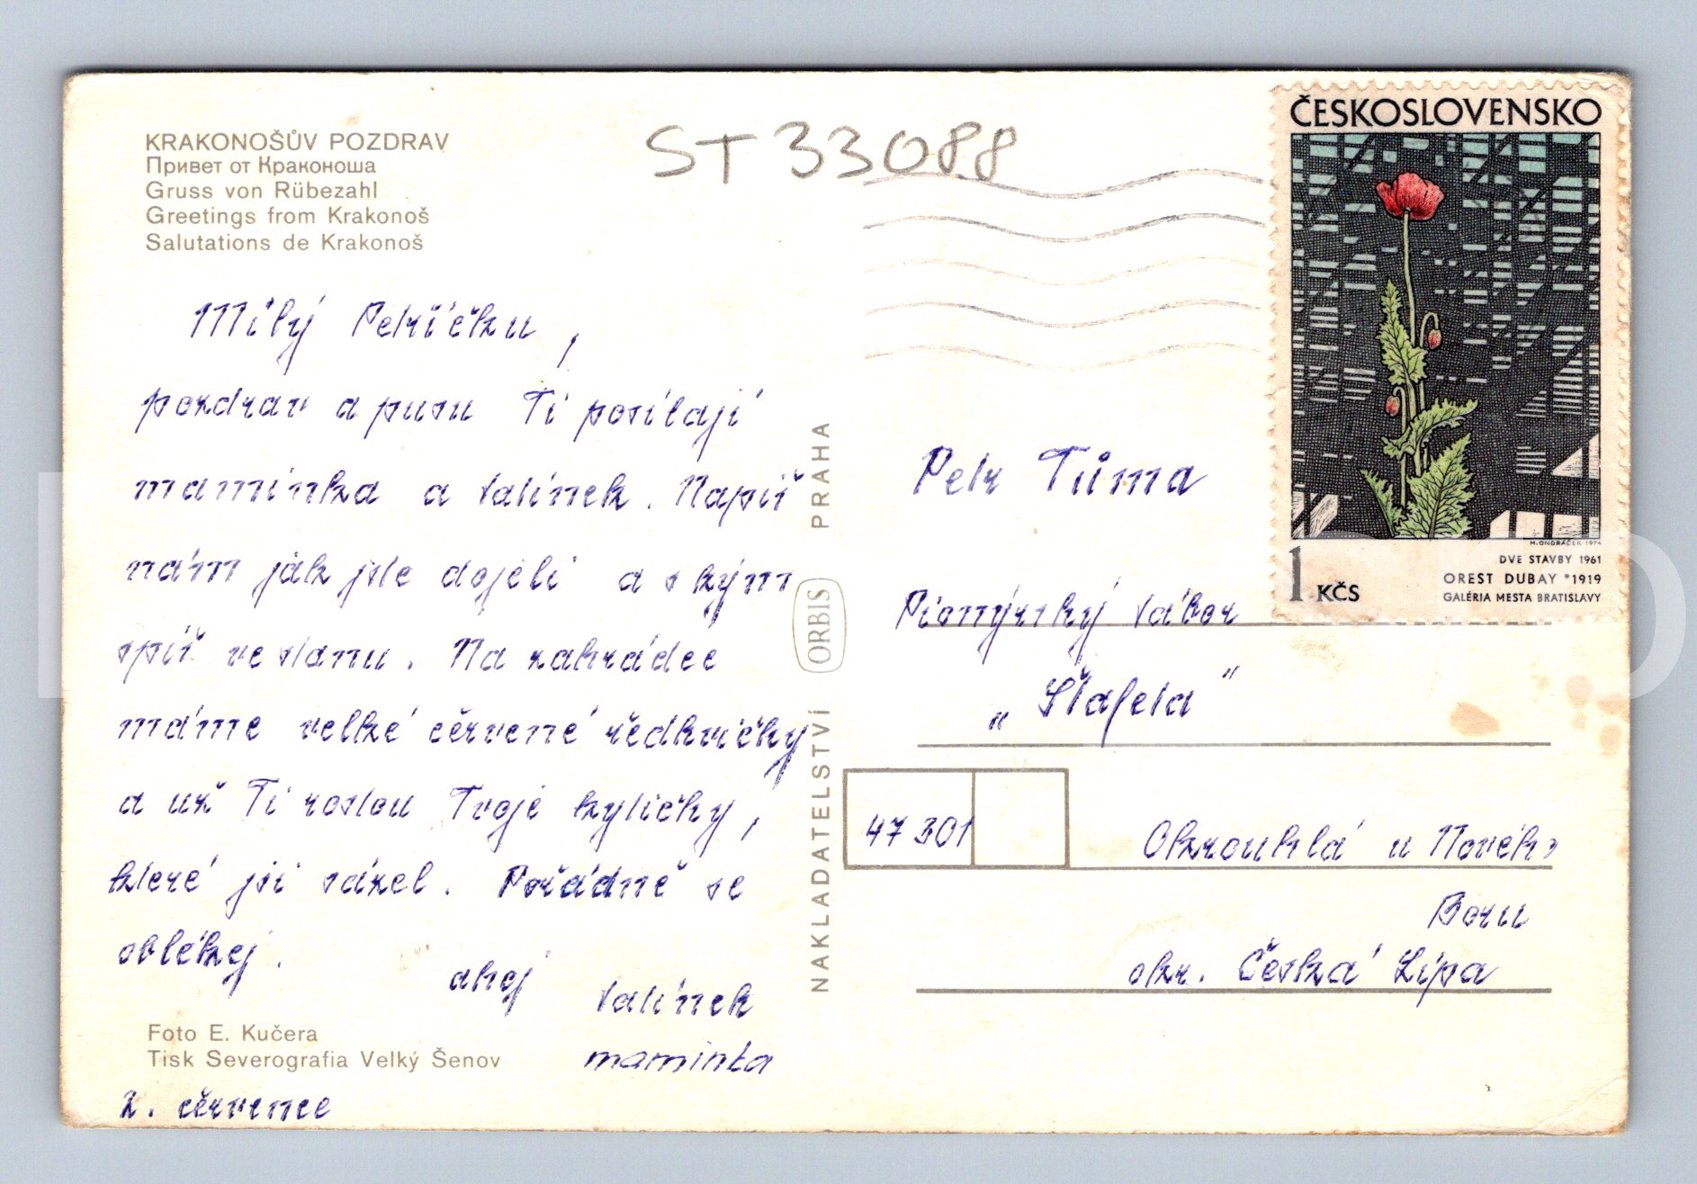 KRAKONOŠŮV POZDRAV
Привет от Краконоша
Gruss von Rübezahl
Greetings from Krakonoš
Salutations de Krakonoš
ST 33088
Milý Petříčku,
pozdrav a pusu Ti posílají
maminka a tatínek. Napiš
nám jak jste dojeli a s kým
spíš ve stanu. Na zahrádce
máme velké červené ředkvičky
a už Ti rostou Tvoje kytičky,
které jsi sázel. Pořádně se
oblékej.
ahoj
tatínek
maminka
Foto E. Kučera
Tisk Severografia Velký Šenov
2. července
NAKLADATELSTVÍ ORBIS PRAHA
ČESKOSLOVENSKO
M. ONDRÁČEK 1974
DVE STAVBY 1961
OREST DUBAY *1919
GALÉRIA MESTA BRATISLAVY
1 KČS
Petr Tůma
Pionýrský tábor
„Štafeta"
47301
Okrouhlá u Nového
Boru
okr. Česká Lípa